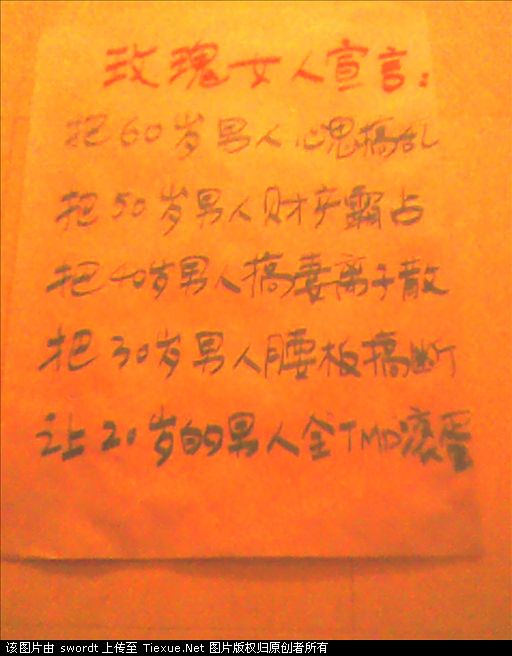 玫瑰女人宣言:
把60岁男人心思搞乱
把50岁男人财产霸占
把40岁男人搞妻离子散
把30岁男人腰板搞断
让20岁的男人全TMD滚蛋
该图片由 swordt 上传至 Tiexue.Net 图片版权归原创者所有